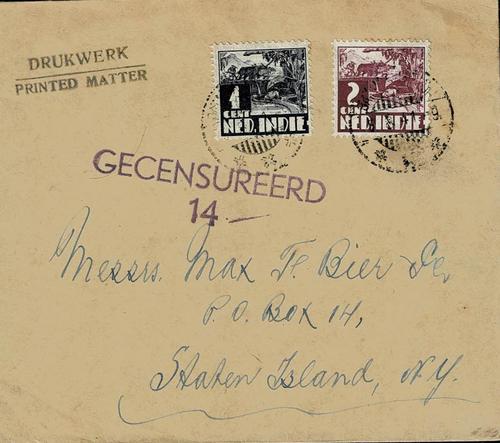 DRUKWERK
PRINTED MATTER
1
CENT
NED. INDIE
2
CENT
NED. INDIE
GECENSUREERD
14 —
Messrs. Max F. Bier Co,
P.O. Box 14,
Staten Island, N.Y.